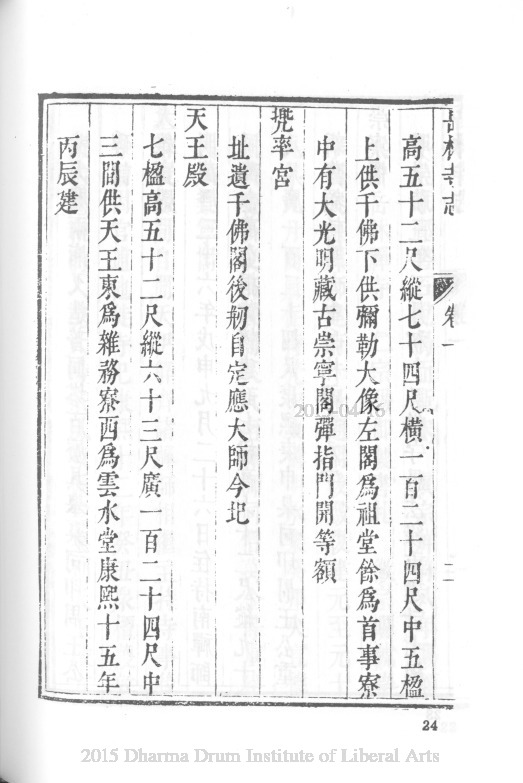 岳林寺志
卷一
二
高五十二尺縱七十四尺橫一百二十四尺中五楹
上供千佛下供彌勒大像左閣爲祖堂餘爲首事寮
中有大光明藏古崇寧閣彈指門開等額
兜率宮
址遺千佛閣後刱自定應大師今圮
天王殿
七楹高五十二尺縱六十三尺廣一百二十四尺中
三間供天王東爲雜務寮西爲雲水堂康熙十五年
丙辰建
24
2015 Dharma Drum Institute of Liberal Arts